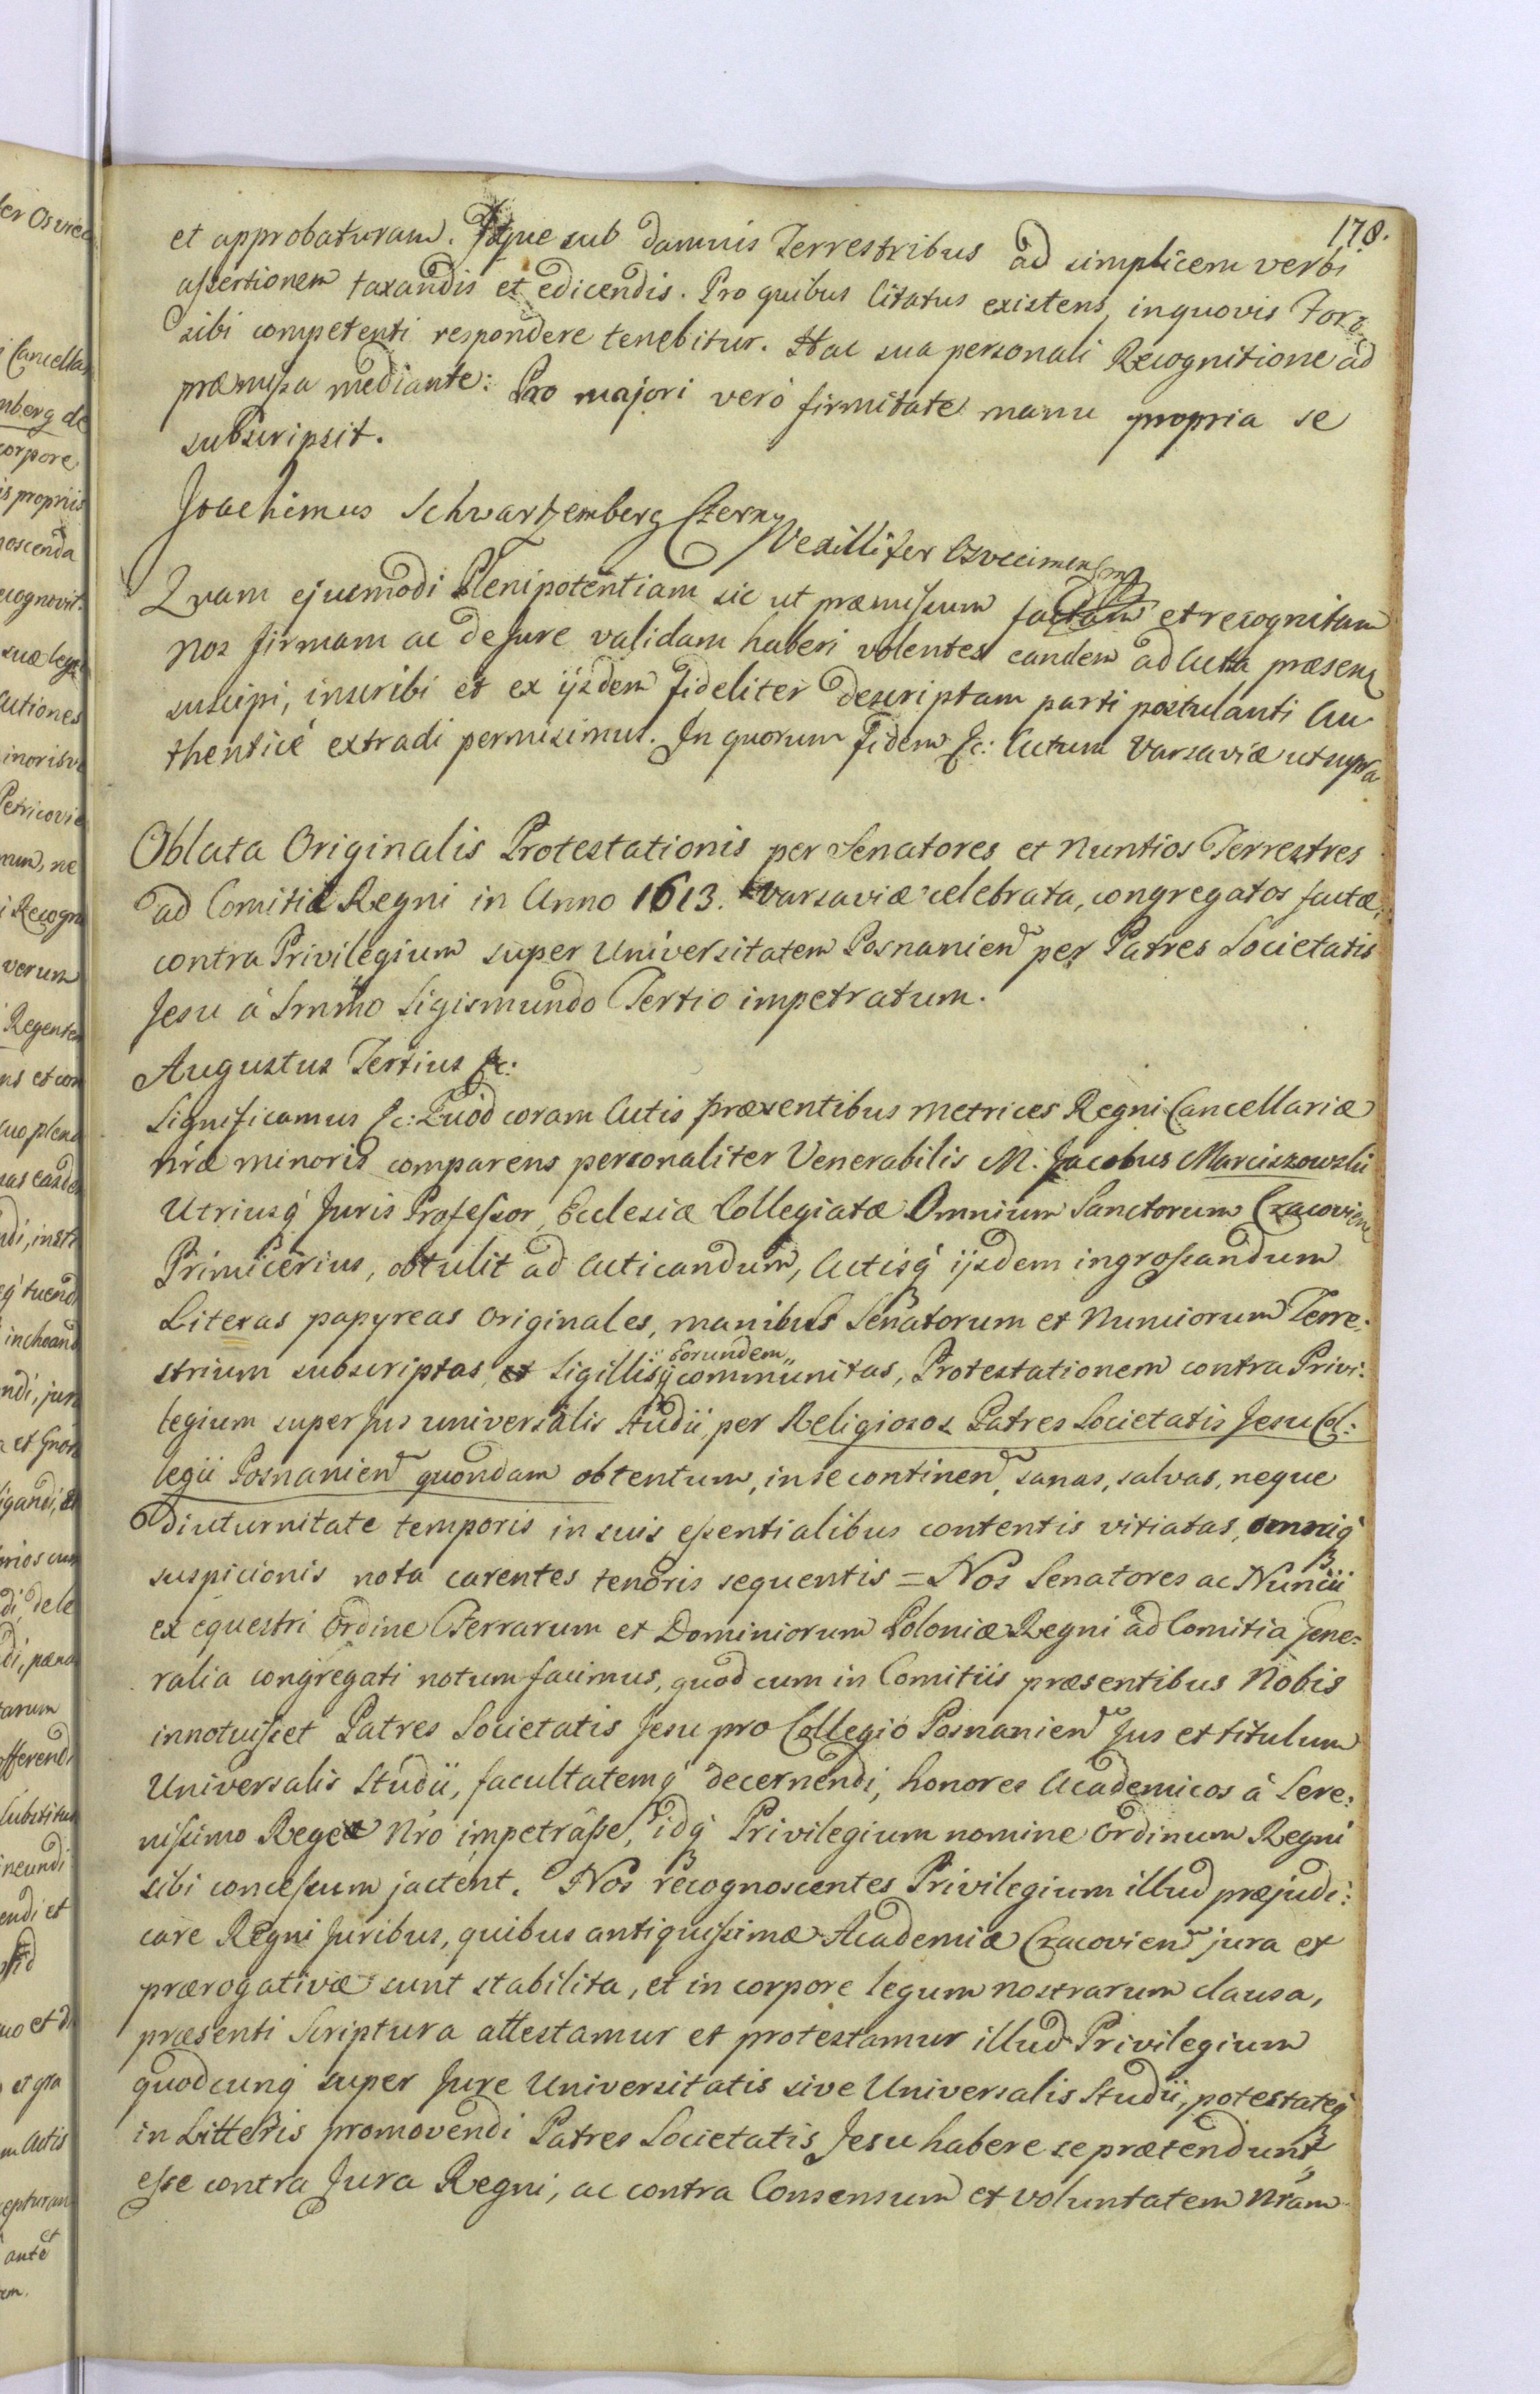 178.
et approbaturam. Idque sub damnis Terrestribus ad simplicem verbi
assertionem taxandis et edicendis. Pro quibus citatus existens, in quovis Foro
sibi competenti respondere tenebitur. Hac sua personali Recognitione ad
præmissa mediante: Pro majori verò firmitate manu propria se
subscripsit.
Joachimus Schwartzemberg Czerny
Vexillifer Osvecimensis
Quam ejusmodi Plenipotentiam sic ut præmissum factam et recognitam
Nos firmam ac de Jure validam haberi volentes eandem ad Acta præsens
suscipi, inscribi et ex ijsdem fideliter descriptam parti postulanti Au
thenticè extradi permisimus. In quorum fidem &c: Actum Varsaviæ ut supra
Oblata Originalis Protestationis per Senatores et Nuntios Terrestres
ad Comitia Regni in Anno 1613. Varsaviæ celebrata, congregatos factæ,
contra Privilegium super Universitatem Posnanien per Patres Societatis
Jesu à Smmo Sigismundo Tertio impetratum.
Augustus Tertius &c:
Significamus &c: Quòd coram Actis præsentibus Metrices Regni Cancellariæ
nræ minoris comparens personaliter Venerabilis M. Jacobus Marciszowski
Utriusq́ Juris Professor, Ecclesiæ Collegiatæ Omnium Sanctorum Cracovien
Primicerius, obtulit ad acticandum, Actisq́ ijsdem ingrossandum
Literas papyreas Originales, manibus Senatorum et Nunciorum Terre:
strium subscriptas, et Sigillis eorundem communitas, Protestationem contra Privi:
legium super Jus universalis Studii, per Religiosos Patres Societatis Jesu Col:
legii Posnanien quondam obtentum, in se continen, sanas, salvas, neque
diuturnitate temporis in suis essentialibus contentis vitiatas, omniq́
suspicionis nota carentes tenoris sequentis = Nos Senatores ac Nuncii
ex equestri Ordine Terrarum et Dominiorum Poloniæ Regni ad Comitia Gene:
ralia congregati notum facimus, quod cum in Comitiis præsentibus Nobis
innotuisset Patres Societatis Jesu pro Collegio Posnanien Jus et titulum
Universalis Studii, facultatemq́ decernendi, honores Academicos à Sere:
nissimo Rege Nrò impetrâsse, idq́ Privilegium nomine Ordinum Regni
sibi concessum jactent. Nos recognoscentes Privilegium illud præjudi:
care Regni Juribus, quibus antiquissimæ Academiæ Cracovien jura et
prærogativæ sunt stabilita, et in corpore legum nostrarum clausa,
præsenti Scriptura attestamur et protestamur illud Privilegium
quodcunq́ super Jure Universitatis sive Universalis Studii, potestateq́
in Litteris promovendi Patres Societatis Jesu habere se prætendunt,
esse contra Jura Regni, ac contra Consensum et voluntatem Nram